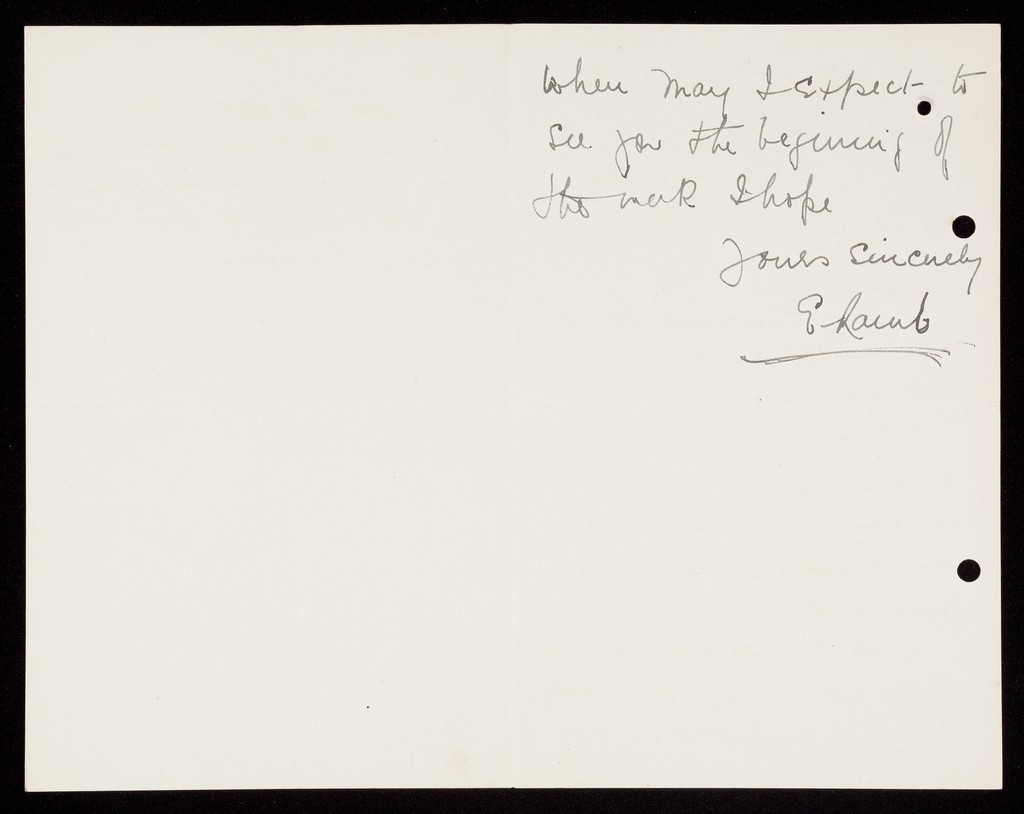 When may I expect to
see you the beginning of
the week I hope
Yours sincerely
E Lamb